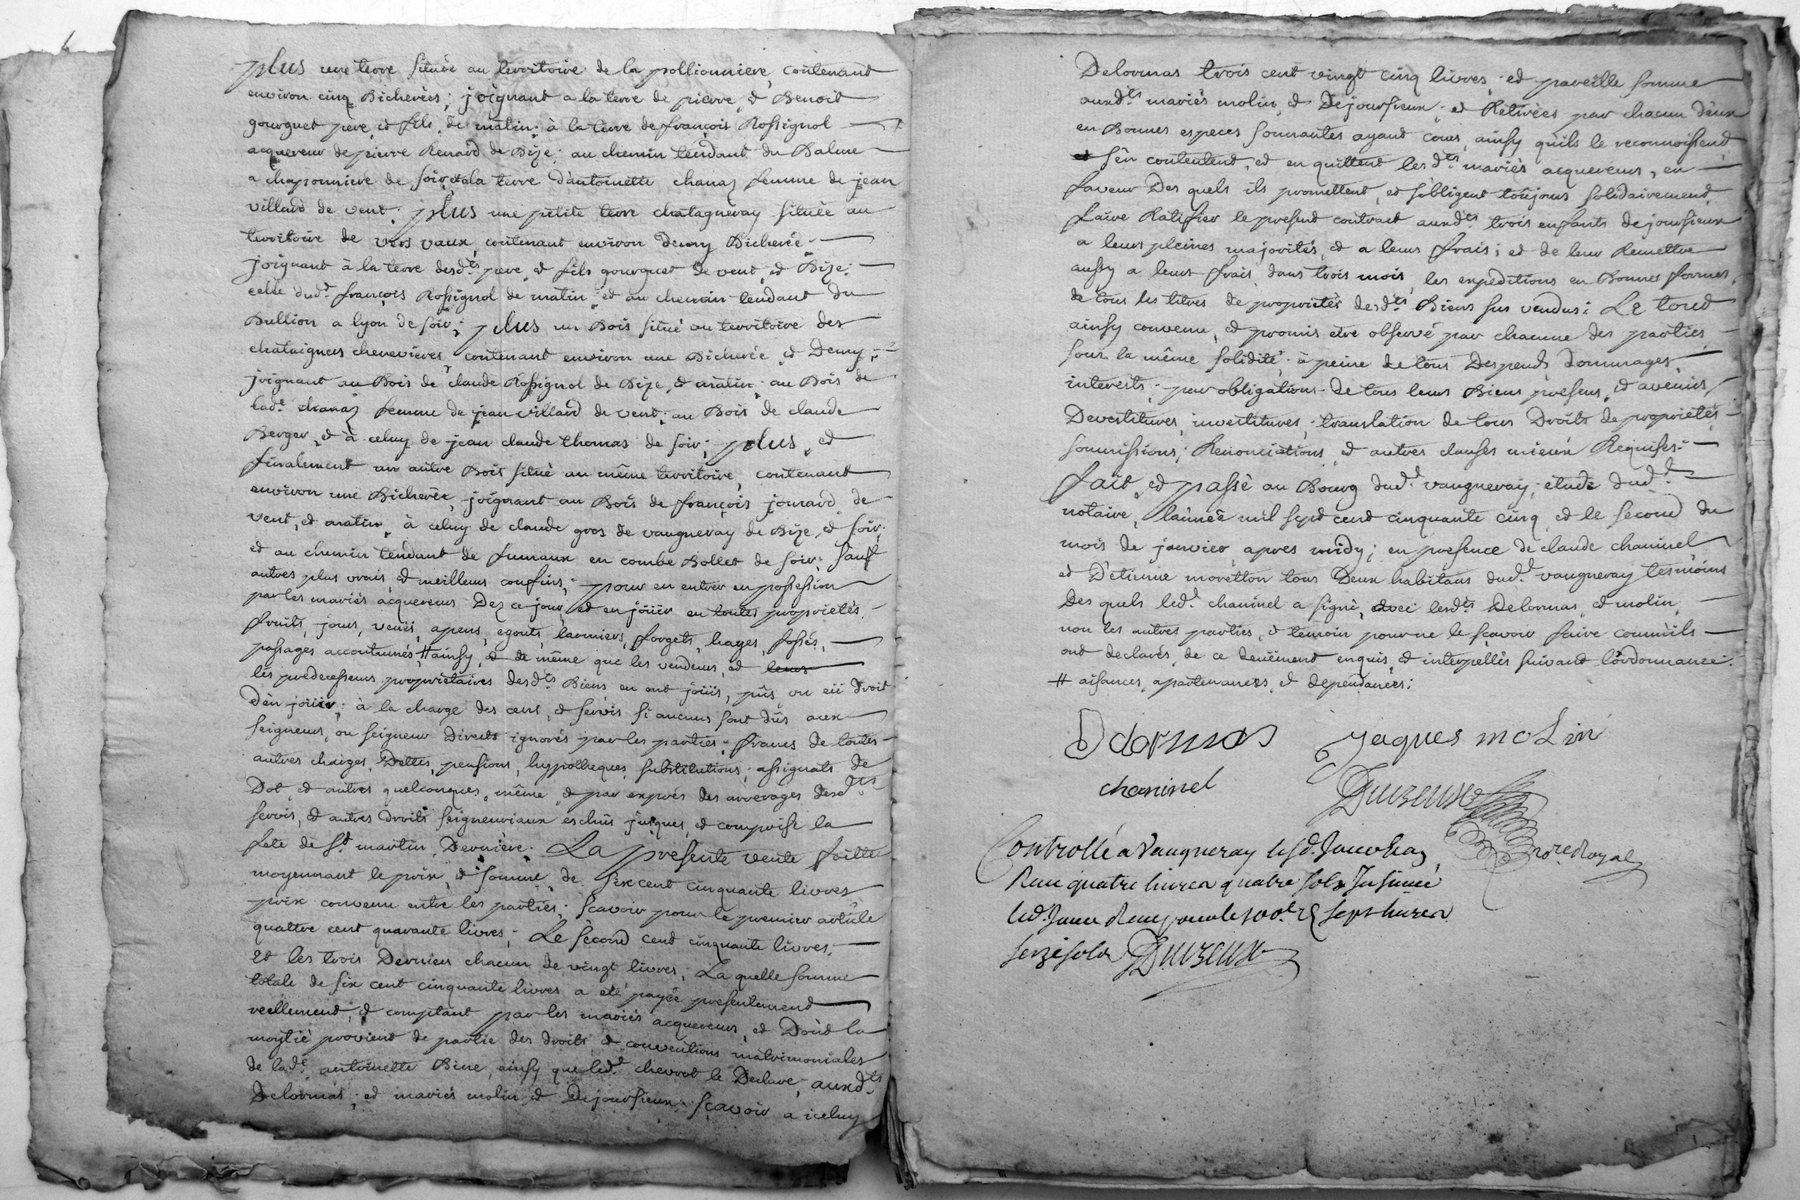 plus une terre située au territoire de la pollionniere, contenant
environ cinq Bicherées; joignant a la terre de pierre, et Benoit
gourguet pere, et fils, de matin; à la terre de françois Rossignol
acquereur de pierre Renard de Bize; au chemin tendant du Balme
a chaponniere de soir, et a la terre d'antoinette chanaz femme de jean
villard de vent; plus une petite terre chatagneray située au
territoire de vers vaux, contenant environ demy Bicherée
joignant à la terre desd.ts pere, et fils gourguet de vent, et Bize;
celle dud.t françois Rossignol de matin; et au chemin tendant du
Bullion a lyon de soir; plus un Bois situé au territoire des
chataignes chenevieres contenant environ une Bicherée, et Demy;
joignant au Bois de claude Rossignol de Bize, et matin; au Bois de
lad.e chanaz femme de jean villard de vent; au Bois de claude
Berger, et à celuy de jean claude thomas de soir; plus, et
finalement un autre Bois situé au même territoire, contenant
environ une Bicherée, joignant au Bois de françois jomard de
vent, et matin, à celuy de claude gros de vaugneray de Bize, et soir;
et au chemin tendant de fumaux en combe Bollet de soir; sauf
autres plus vrais et meilleurs confins; pour en entrer en possession
par les mariés acquereurs Dez ce jour, et en joüir en toutes proprietés
fruits, jours, veües, apens, egouts, larmiers, forgets, hayes, fossés,
passages accoutumés, # ainsy, et de même que les vendeurs, et leurs
les predecesseurs proprietaires desd.ts Biens en ont joüis, pûs, ou eü droit
d'en joüir; à la charge des cens, et servis si aucuns sont dûs aux
seigneurs, ou seigneur Directs ignorés par les parties; francs de toutes
autres charges, Dettes, pensions, hypotheques, substitutions, assignats de
Dot, et autres quelconques, même, et par exprés des arrerages desd.ts
servis, et autres droits seigneuriaux eschûs jusques, et comprise la
fete de S.t martin Derniere; La presente vente faitte
moyennant le prix, et somme de six cent cinquante livres
prix convenu entre les parties; sçavoir pour le premier article
quattre cent quarante livres; Le second cent cinquante livres,
et les trois Derniers chacun de vingt livres; La quelle somme
totale de six cent cinquante livres a eté payée presentement
reellement, et comptant par les mariés acquereurs, et Dont la
moytié provient de partie des droits et conventions matrimoniales
de lad.e antoinette Bine, ainsy que led.t chevrot le Declare, auxd.ts
Delormas, et mariés molin, et Dejoursieux; sçavoir a iceluy
Delormas trois cent vingt cinq livres; et pareille somme
auxd.ts mariés molin, et Dejoursieux; et Retirées par chacun d'eux
en Bonnes especes sonnantes ayant cours, ainsy qu'ils le reconnoissent,
et s'en contentent, et en quittent les d.ts mariés acquereurs, en
faveur Des quels ils promettent, et s'obligent toujours solidairement
faire Ratifier le present contract auxd.ts trois enfants dejoursieux
a leurs pleines majorités, et a leurs frais; et de leur Remettre
aussy a leurs frais dans trois mois, les expeditions en Bonnes formes,
de tous les titres de proprietés desd.ts Biens sus vendus; Le tout
ainsy convenu, et promis etre observé par chacune des parties
sous la même solidité, à peine de tous Despends, dommages,
interests; par obligations de tous leurs Biens presens, et avenirs,
Devestitures, investitures, translation de tous Droits de proprietés
soumissions; Renonciations, et autres clauses mieux Requises;
fait, et passé au Bourg dud.t vaugneray, étude dud.t
notaire, l'année mil sept cent cinquante cinq, et le second du
mois de janvier, apres midy; en presence de claude chaninel
et D'etienne moretton tous Deux habitans dud.t vaugneray tesmoins
Des quels led.t chaninel a signé, avec lesd.ts Delormas, et molin,
non les autres parties, et temoin pour ne le sçavoir faire comm'ils
ont declarés, de ce deüement enquis, et interpellés suivant l'ordonnance;
# aisances, apartenances, et dependances;
Delormas Jaques molin
chaninel
Duizeux
no.re Royal
Controllé a Vaugneray led. Janvier
Reçu quatre livres quatre sols Insinué
sept livres
seize sols Duizeux